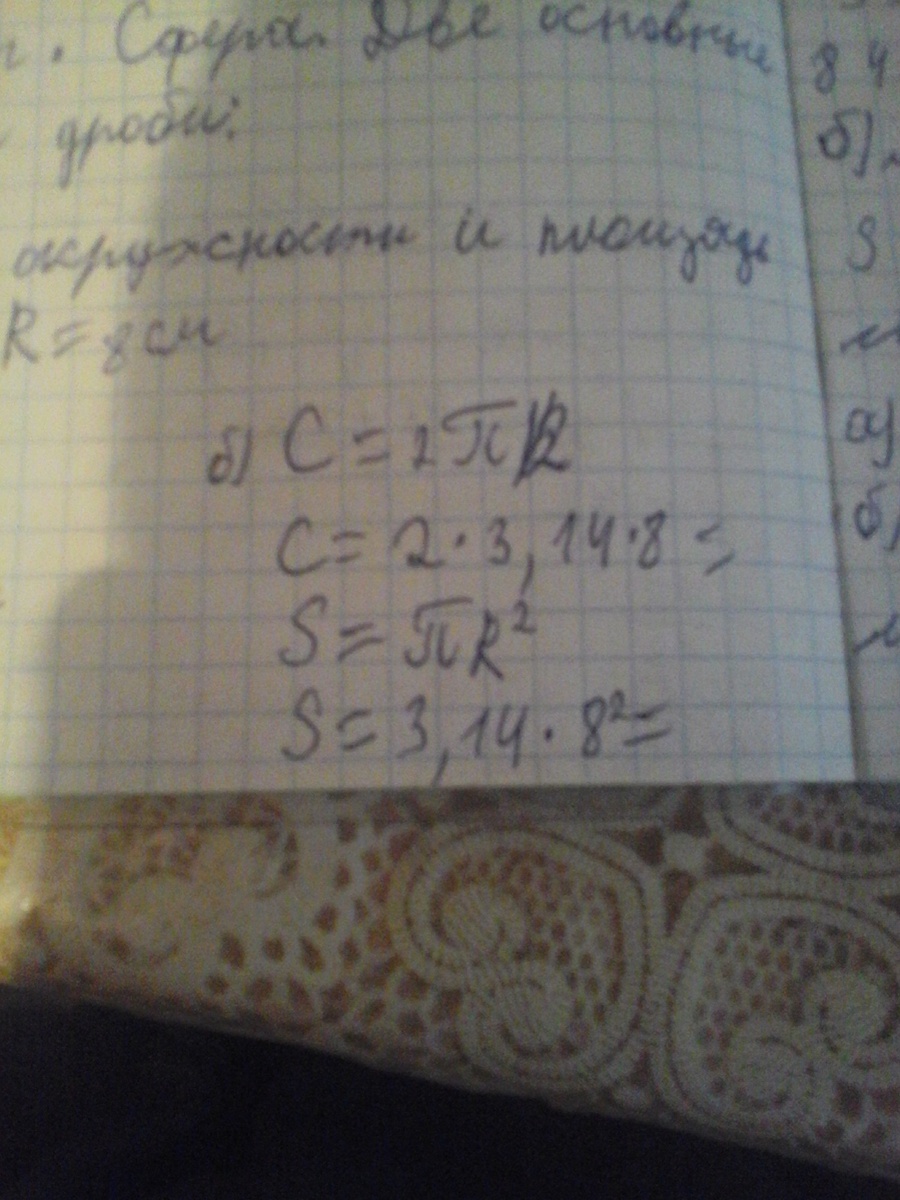 . Сфера. Две основные
дроби:
окружности и площадь
R = 8 см
б) C = 2πR
C = 2·3,14·8 =
S = πR²
S = 3,14·8² =
8 4
б)
S
а)
б)